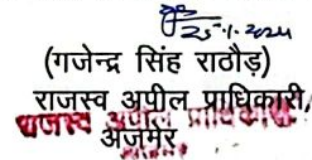 25.1.2024
(गजेन्द्र सिंह राठौड़)
राजस्व अपील प्राधिकारी,
राजस्व अपील प्राधिकारी
अजमेर